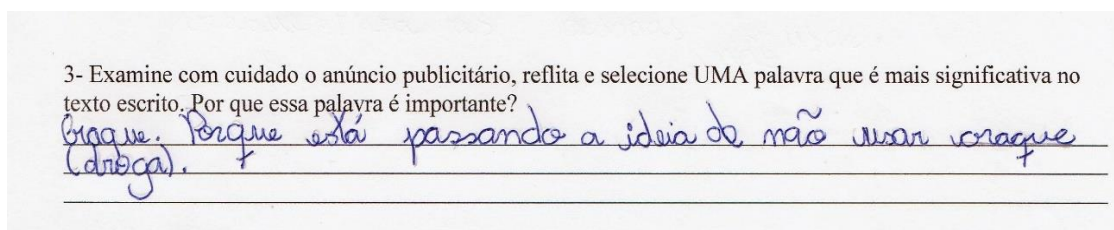 3- Examine com cuidado o anúncio publicitário, reflita e selecione UMA palavra que é mais significativa no
texto escrito. Por que essa palavra é importante?
Craque. Porque está passando a ideia de não usar craque
(droga).